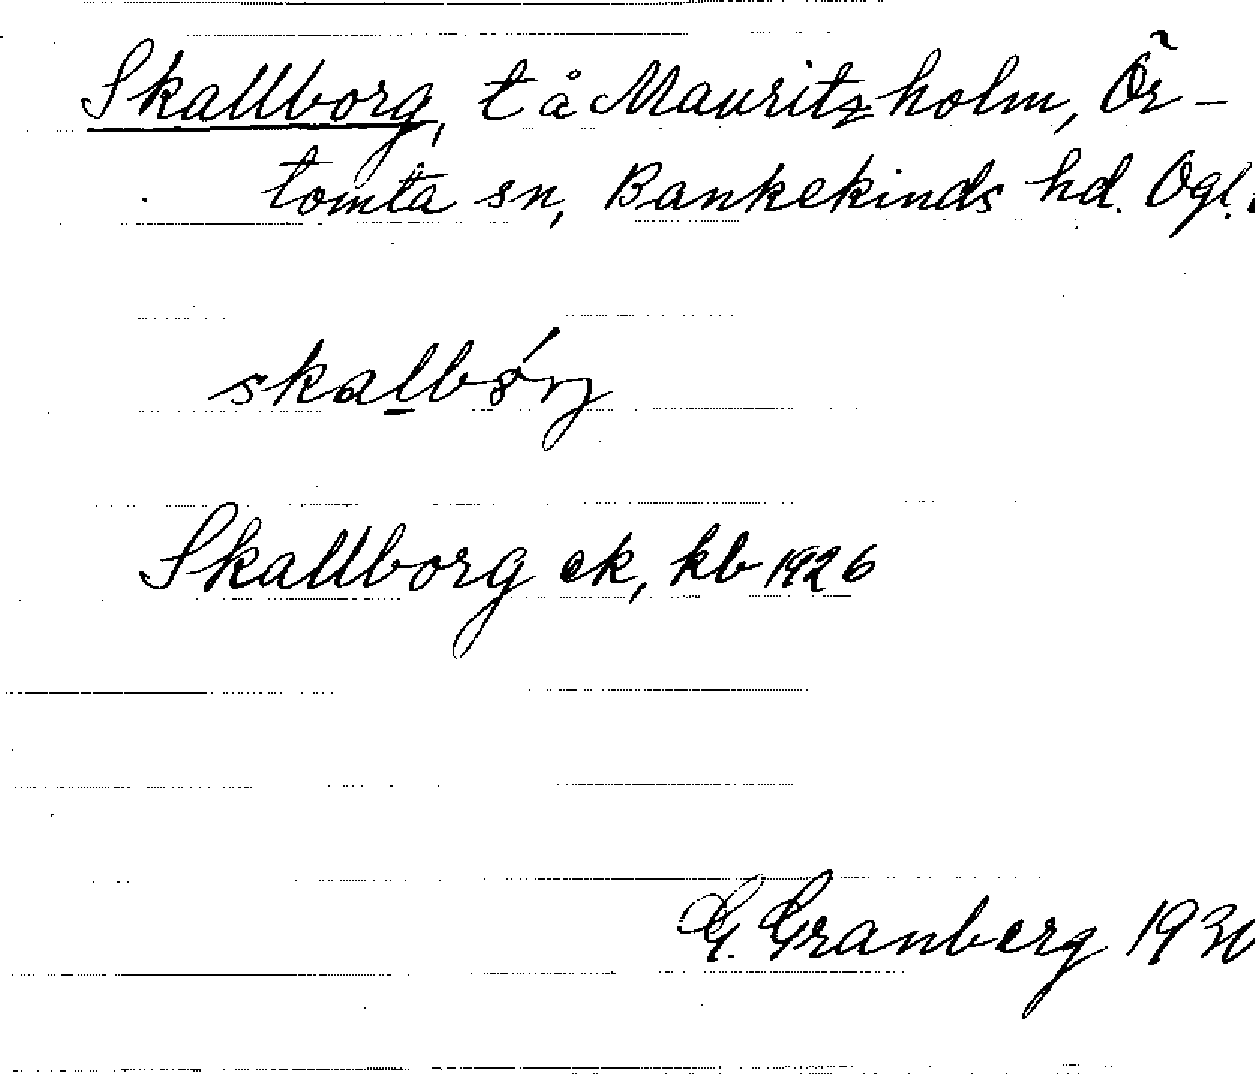 Skallborg, t å Mauritzholm, Ör-
tomta sn, Bankekinds hd. Ögl.
Skallborg ek, kb 1926
G. Granberg 1930